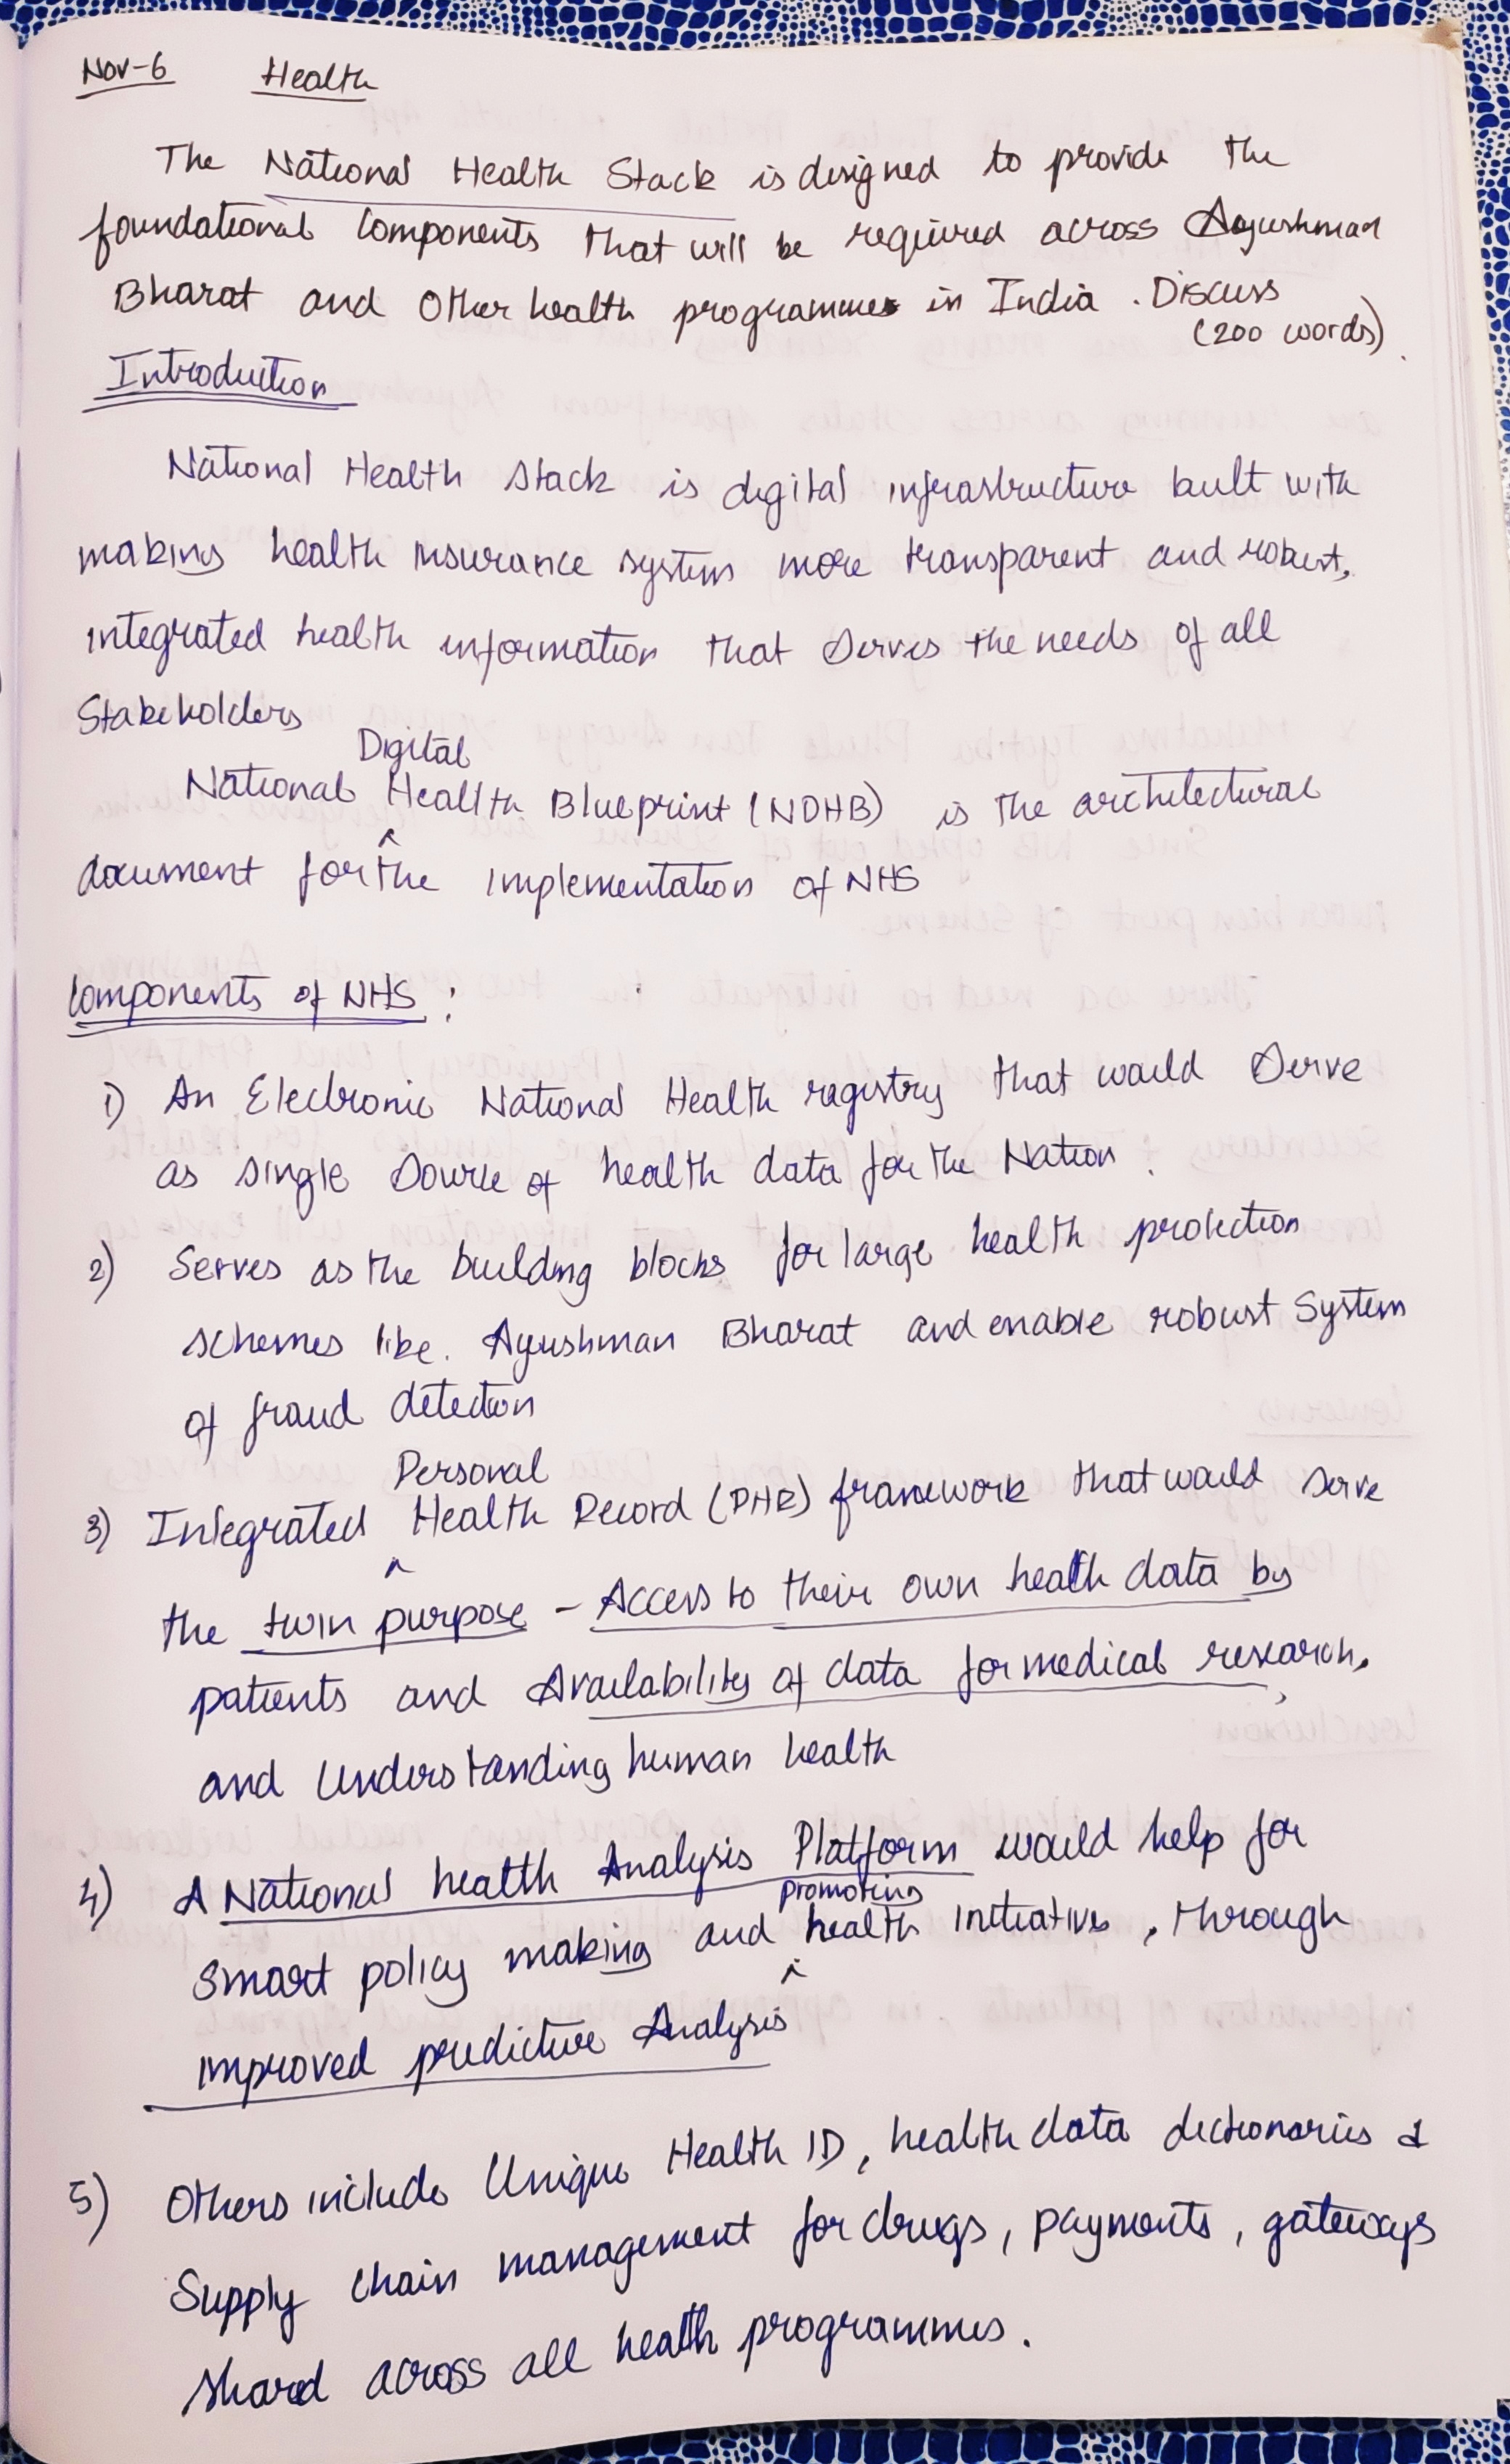 Nov-6 Health
The National Health Stack is designed to provide the
foundational components that will be required across Ayushman
Bharat and Other health programmes in India. Discuss
(200 words).
Introduction
National Health Stack is digital infrastructure built with
making health insurance system more transparent and robust,
integrated health information that serves the needs of all
Stakeholders
National Digital Health Blueprint (NDHB) is the architectural
document for the implementation of NHS
Components of NHS :
1) An Electronic National Health registry that would Serve
as single source of health data for the Nation.
2) Serves as the building blocks for large health protection
schemes like. Ayushman Bharat and enable robust System
of fraud detection
3) Integrated Personal Health Record (PHR) framework that would serve
the twin purpose - Access to their own health data by
patients and Availability of data for medical research,
and Understanding human health
4) A National health Analysis Platform would help for
smart policy making and promoting health initiatives, through
improved predictive Analysis
5) Others include Unique Health ID, health data dictionaries &
Supply chain management for drugs, payments, gateways
shared across all health programmes.